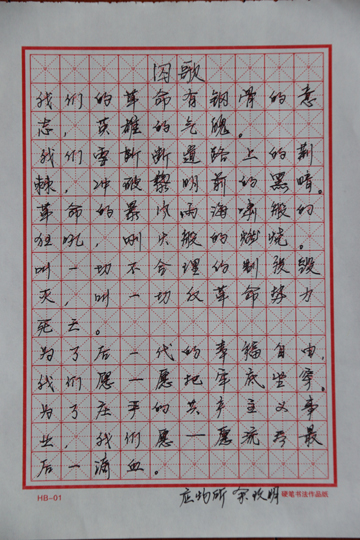 囚歌
我们的革命有钢骨的意
志，英雄的气魄。
我们要斩断道路上的荆
棘，冲破黎明前的黑暗。
革命的暴风雨海啸般的
狂吼，叫火般的燃烧。
叫一切不合理的制度毁
灭，叫一切反革命势力
死亡。
为了后一代的幸福自由，
我们愿—愿把牢底坐穿。
为了庄严的共产主义事
业，我们愿—愿流尽最
后一滴血。
HB-01
硬笔书法作品纸